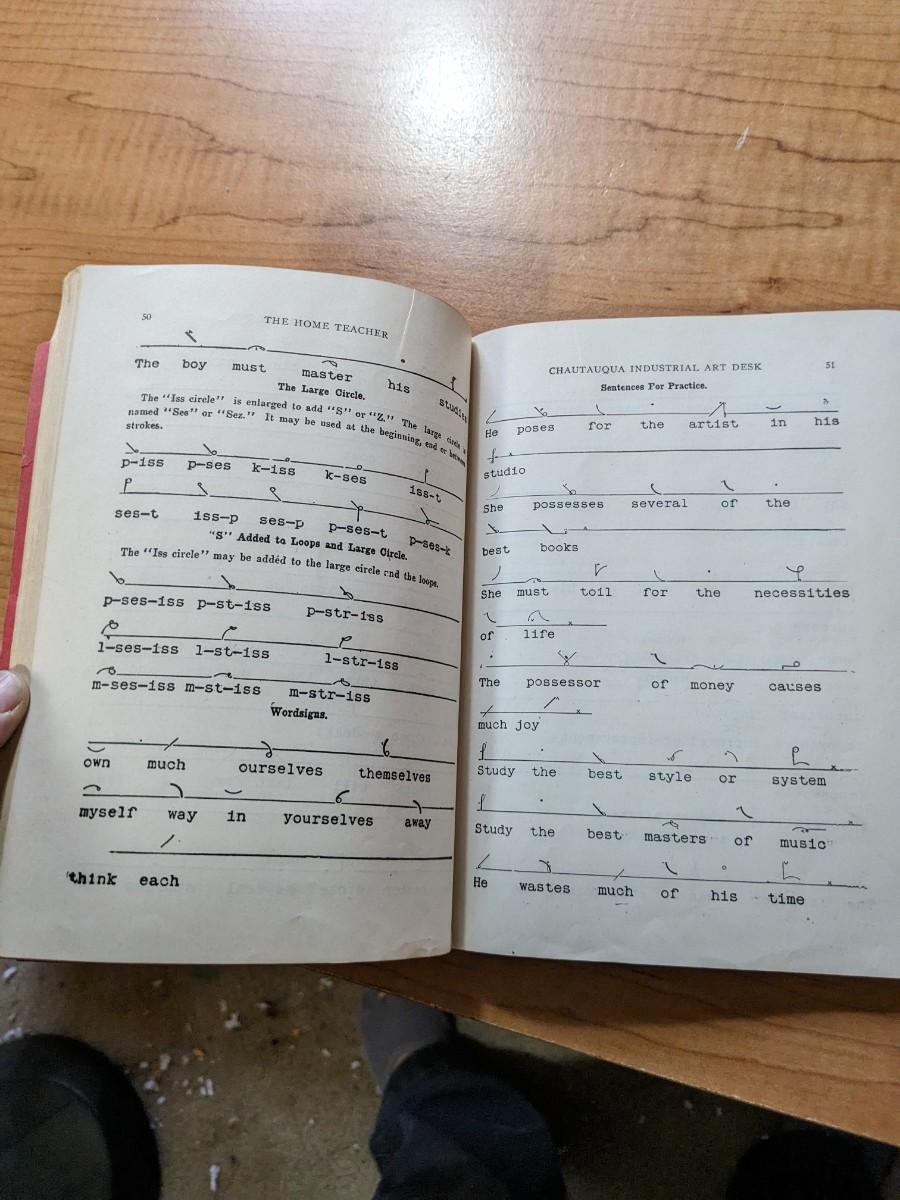 50
THE HOME TEACHER
The boy must master his studies
The Large Circle.
The "Iss circle" is enlarged to add "S" or "Z." The large circle is
named "Ses" or "Sez." It may be used at the beginning, end or between
strokes.
p-iss p-ses k-iss k-ses iss-t
ses-t iss-p ses-p p-ses-t p-ses-k
"S" Added to Loops and Large Circle.
The "Iss circle" may be added to the large circle and the loops.
p-ses-iss p-st-iss p-str-iss
l-ses-iss l-st-iss l-str-iss
m-ses-iss m-st-iss m-str-iss
Wordsigns.
own much ourselves themselves
myself way in yourselves away
think each
CHAUTAUQUA INDUSTRIAL ART DESK 51
Sentences For Practice.
He poses for the artist in his
studio
She possesses several of the
best books
She must toil for the necessities
of life
The possessor of money causes
much joy
Study the best style or system
Study the best masters of music
He wastes much of his time